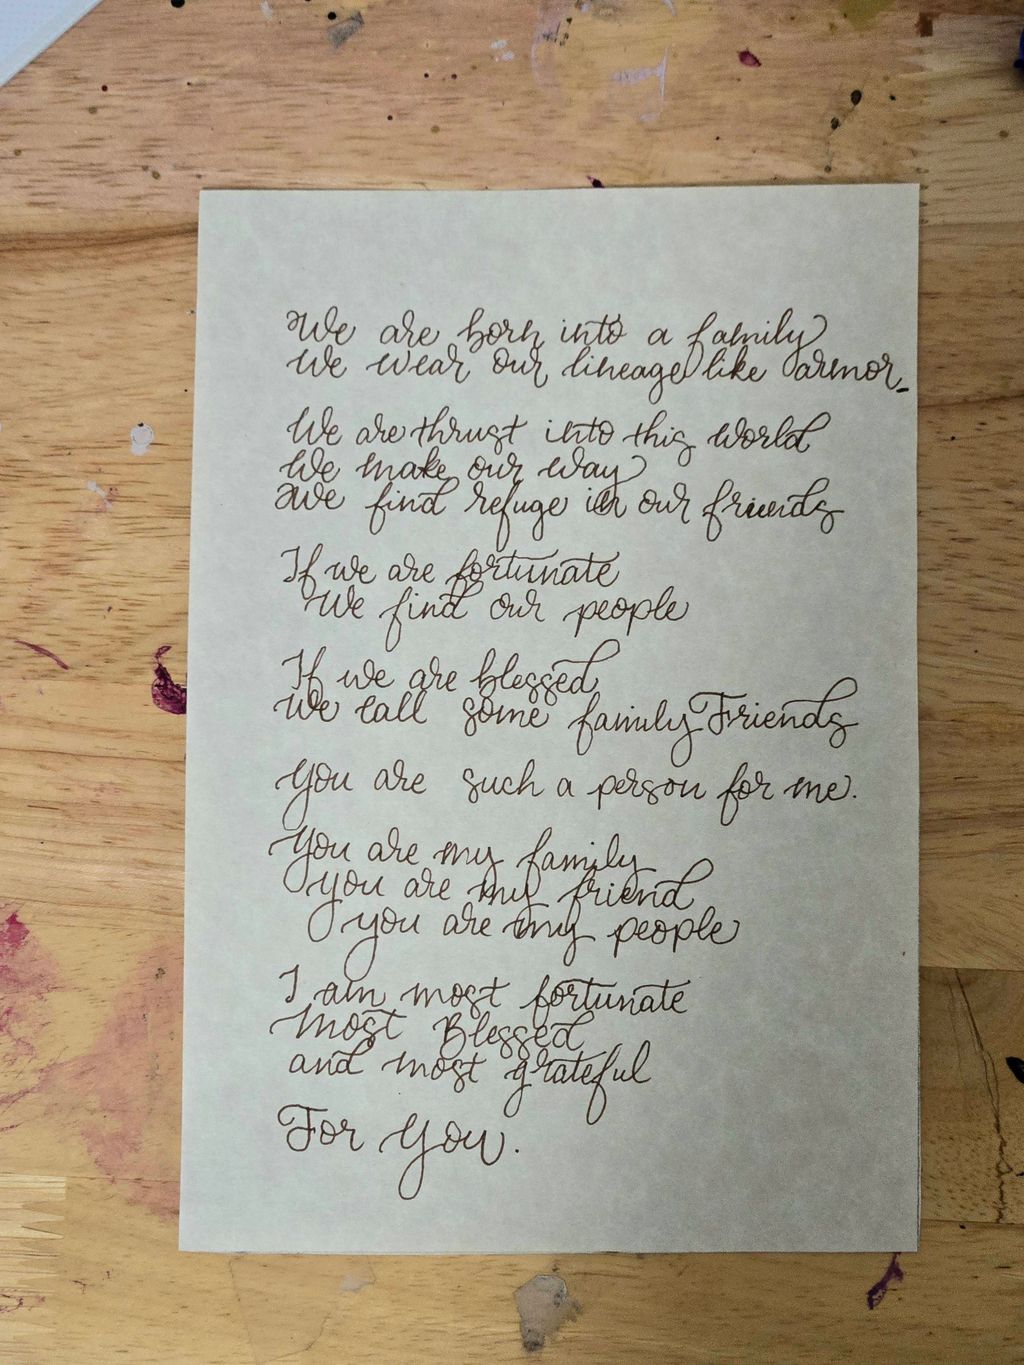 We are born into a family
we wear our lineage like armor.
We are thrust into this world
We make our way
We find refuge in our friends
If we are fortunate
We find our people
If we are blessed
We call some family Friends
You are such a person for me.
You are my family
you are my friend
you are my people
I am most fortunate
most Blessed
and most grateful
For You.